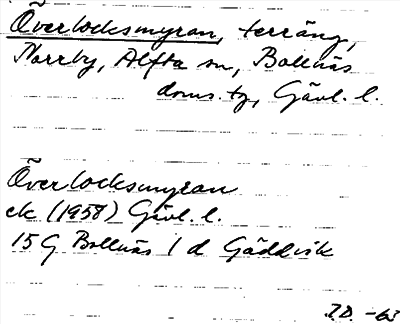 Överlocksmyran, terräng,
Norrby, Alfta sn, Bollnäs
doms. tg, Gävl. l.
Överlocksmyran
ek (1958) Gävl. l.
15 G Bollnäs 1 d Gäddvik
J.D. -63